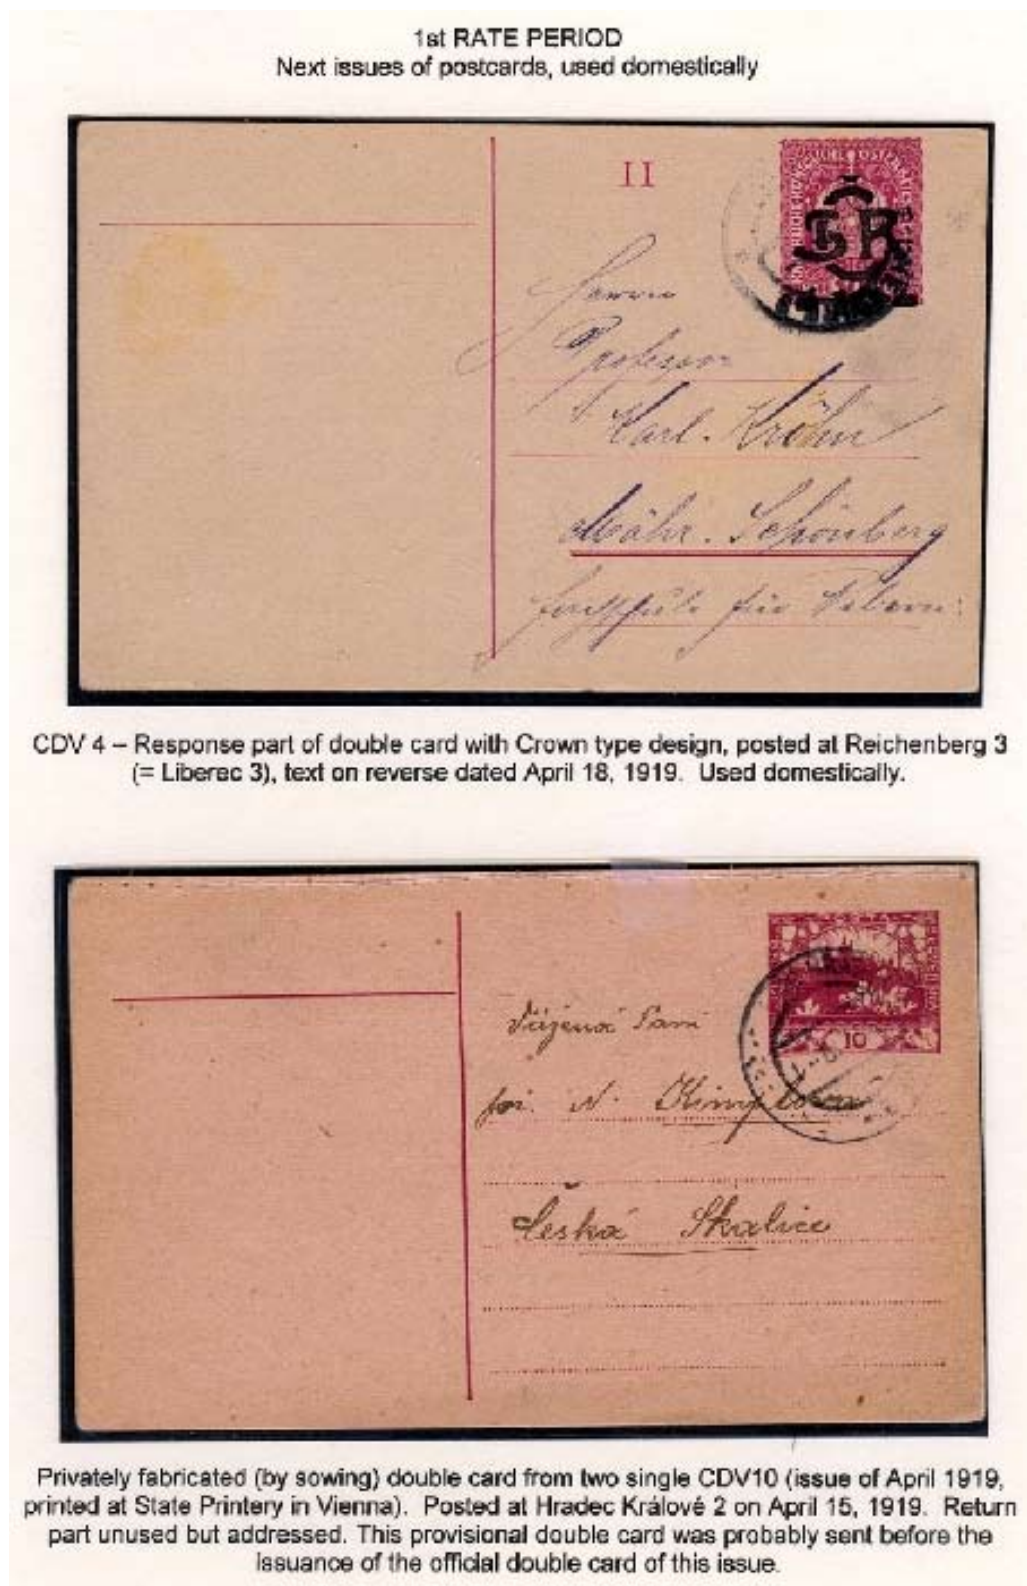 1st RATE PERIOD
Next issues of postcards, used domestically
II
Herrn
Professor
Karl Kröhn
Mähr. Schönberg
für
CDV 4 – Response part of double card with Crown type design, posted at Reichenberg 3
(= Liberec 3), text on reverse dated April 18, 1919. Used domestically.
10
Paní
N.
Česká Skalice
Privately fabricated (by sowing) double card from two single CDV10 (issue of April 1919,
printed at State Printery in Vienna). Posted at Hradec Králové 2 on April 15, 1919. Return
part unused but addressed. This provisional double card was probably sent before the
issuance of the official double card of this issue.